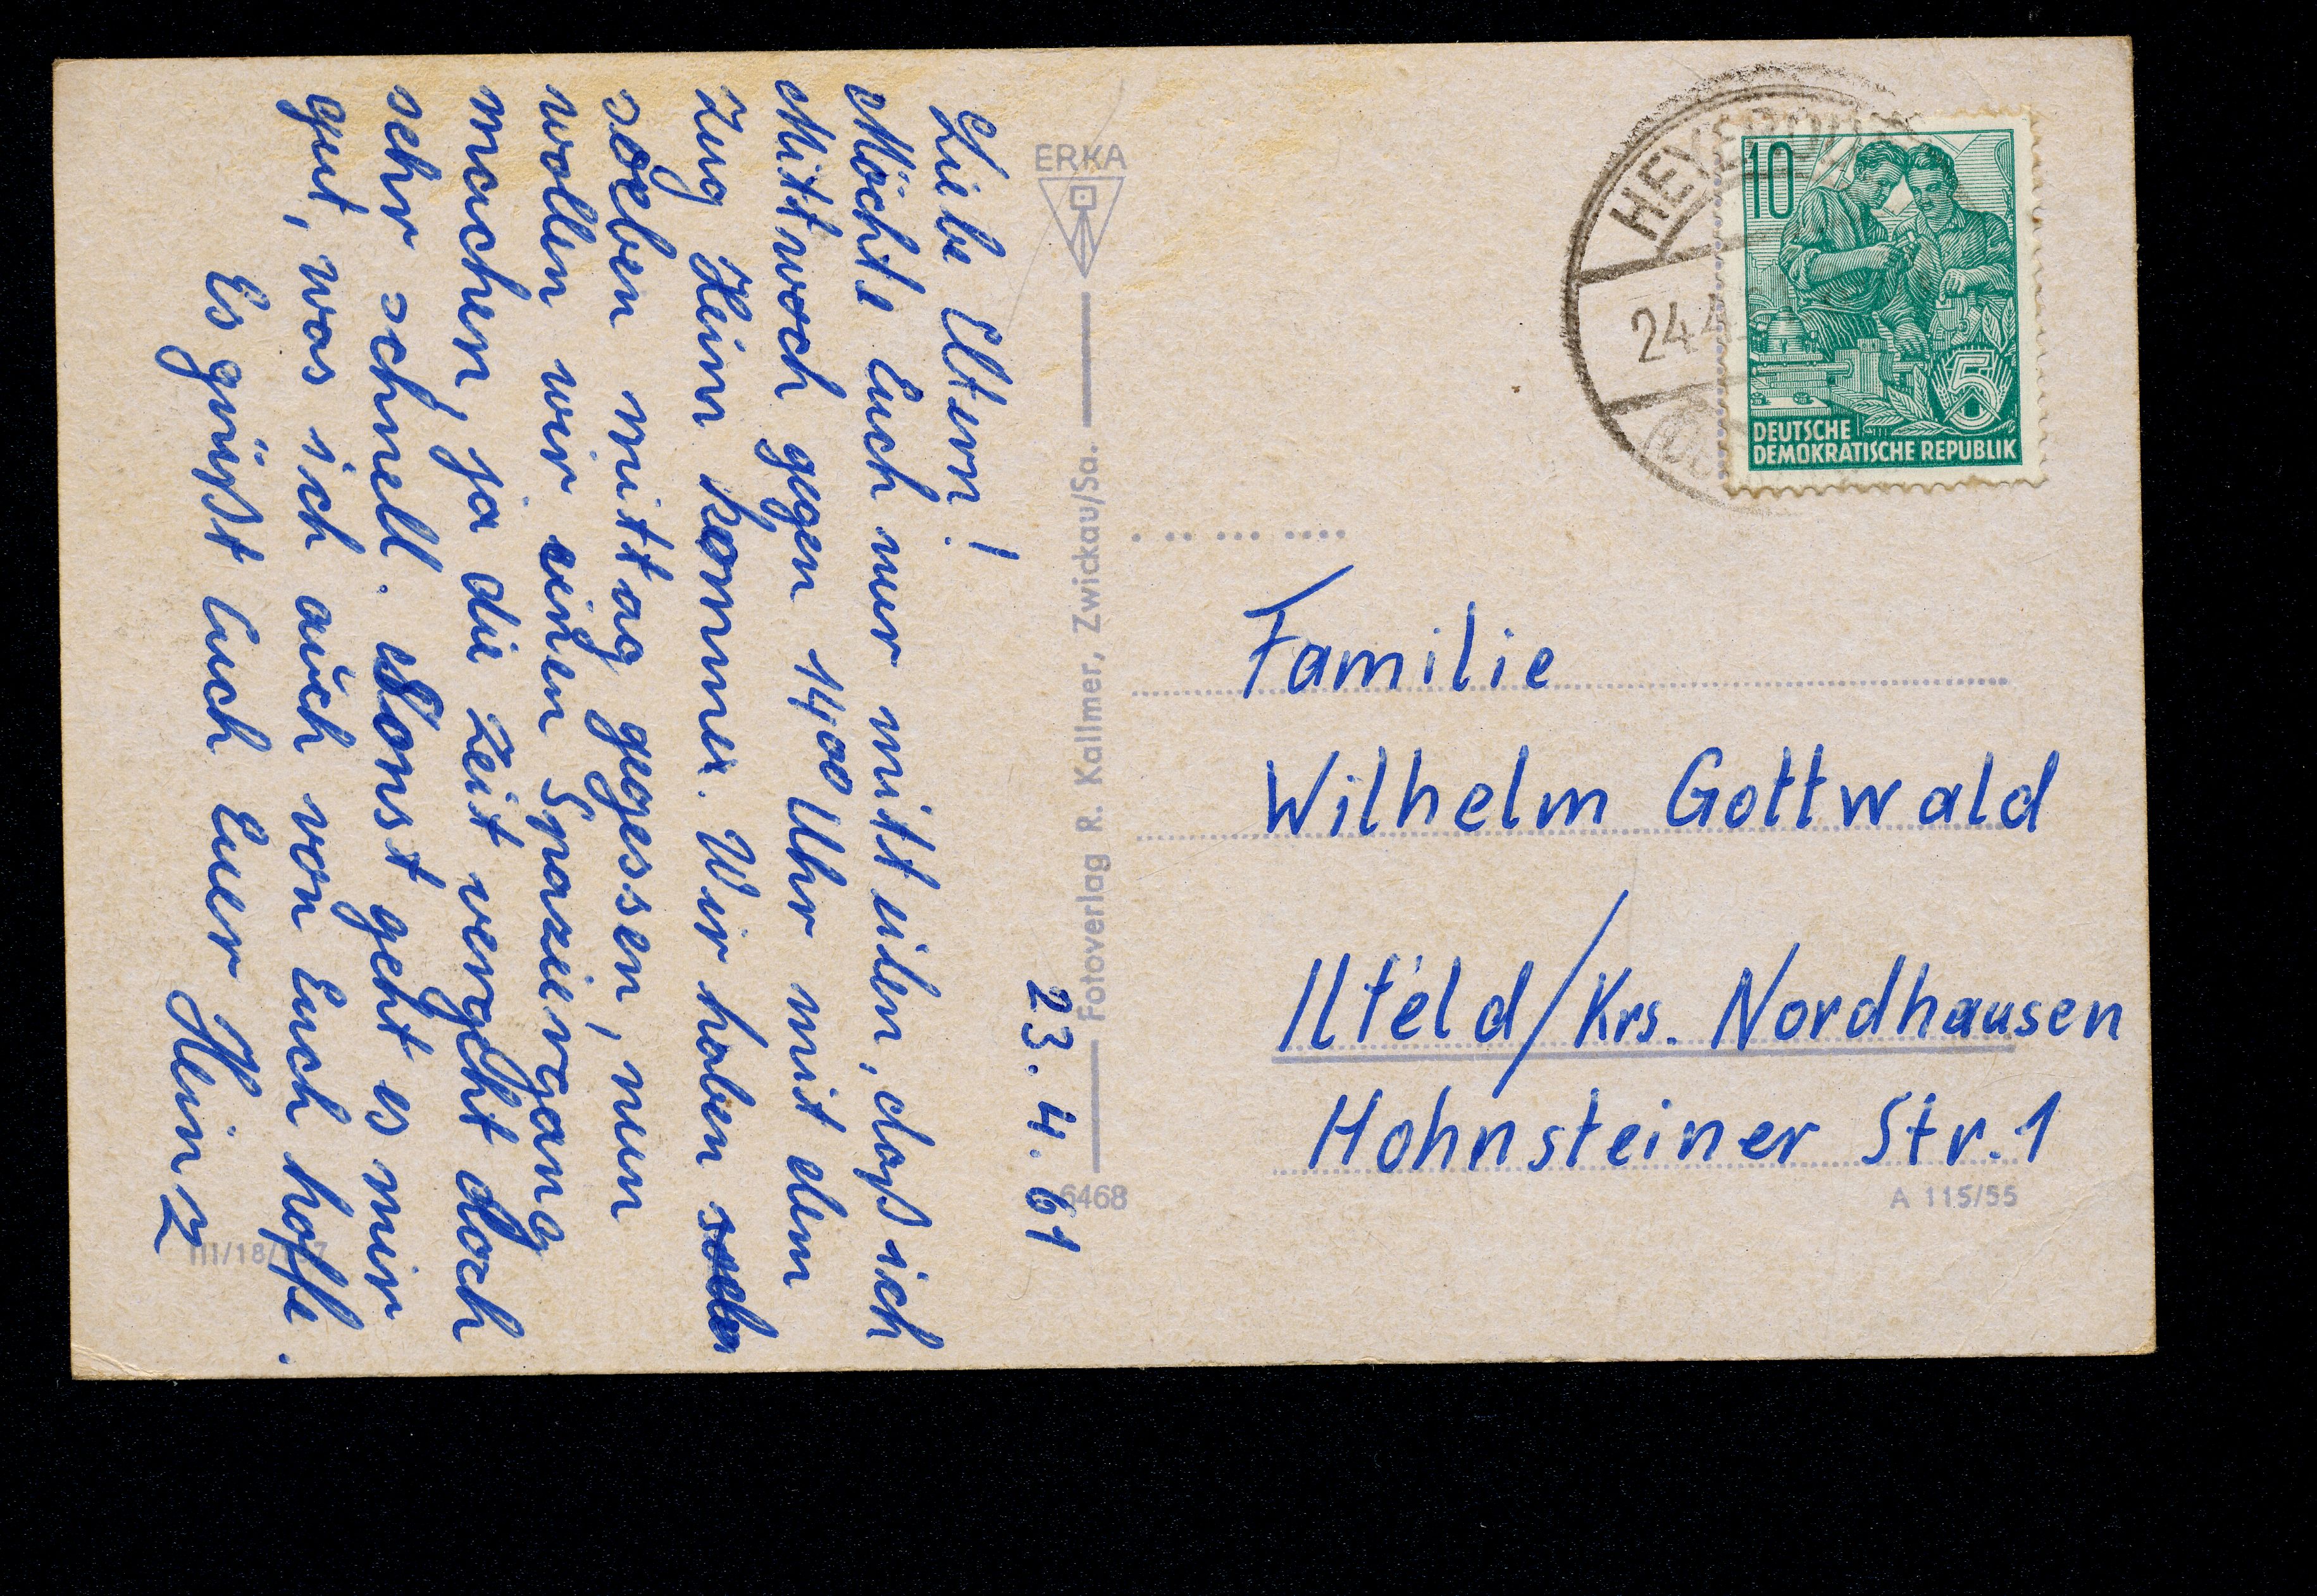 23.4.61
Liebe Eltern!
Möchte Euch nur mitteilen, daß ich
Mittwoch gegen 1400 Uhr mit dem
Zug Heim komme. Wir haben
soeben mittag gegessen, nun
wollen wir einen Spaziergang
machen, ja die Zeit vergeht doch
sehr schnell. Sonst geht es mir
gut, was ich auch von Euch hoffe.
Es grüßt Euch Euer Heinz
III/18/
ERKA
Fotoverlag R. Kallmer, Zwickau/Sa.
6468
24.4
10
5
DEUTSCHE
DEMOKRATISCHE REPUBLIK
Familie
Wilhelm Gottwald
Ilfeld/Krs. Nordhausen
Hohnsteiner Str. 1
A 115/55